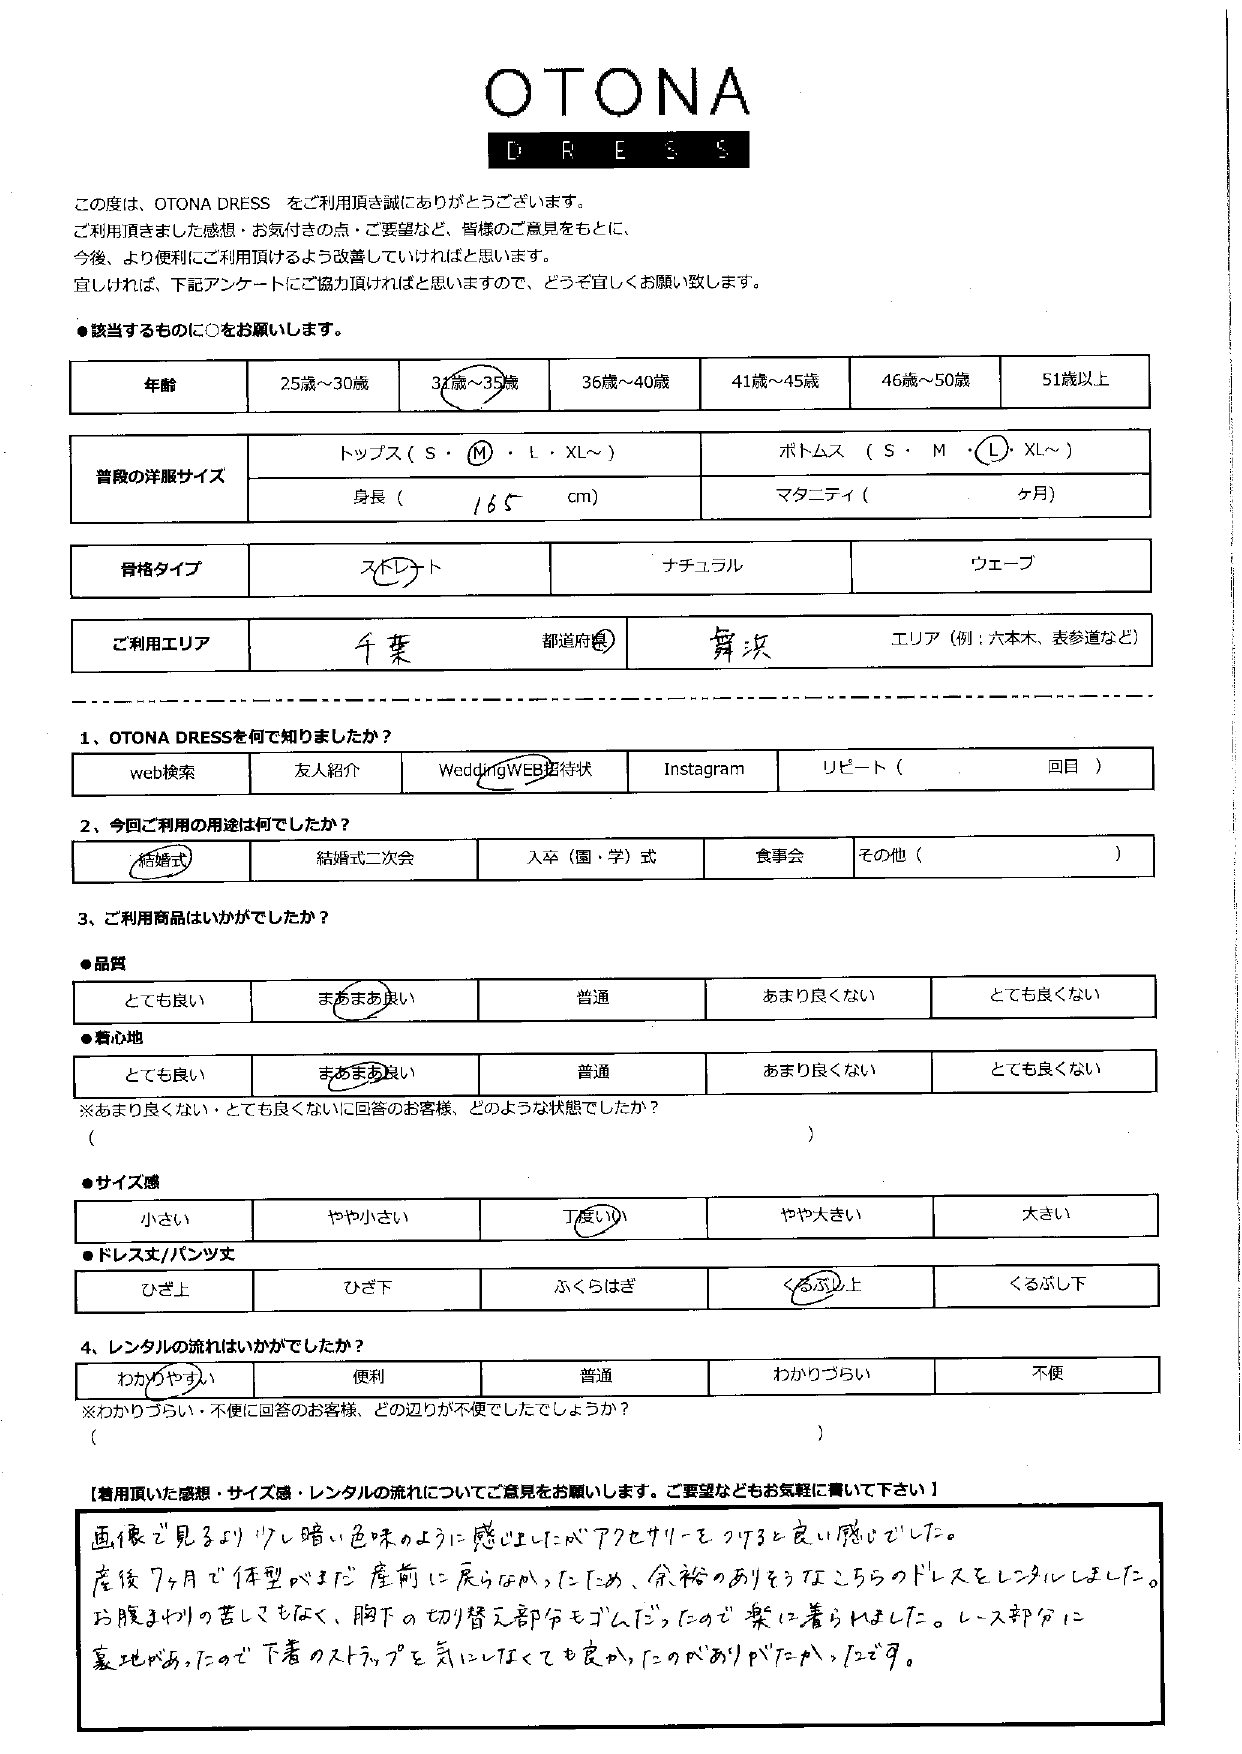 OTONA
DRESS
この度は、OTONA DRESS をご利用頂き誠にありがとうございます。
ご利用頂きました感想・お気付きの点・ご要望など、皆様のご意見をもとに、
今後、より便利にご利用頂けるよう改善していければと思います。
宜しければ、下記アンケートにご協力頂ければと思いますので、どうぞ宜しくお願い致します。
●該当するものに○をお願いします。
年齢 25歳～30歳 31歳～35歳 36歳～40歳 41歳～45歳 46歳～50歳 51歳以上
普段の洋服サイズ トップス ( S ・ M ・ L ・ XL～ ) ボトムス ( S ・ M ・ L ・ XL～ )
身長 ( 165 cm) マタニティ ( ヶ月)
骨格タイプ ストレート ナチュラル ウェーブ
ご利用エリア 千葉 都道府県 舞浜 エリア（例；六本木、表参道など）
1、OTONA DRESSを何で知りましたか？
web検索 友人紹介 WeddingWEB招待状 Instagram リピート ( 回目 )
2、今回ご利用の用途は何でしたか？
結婚式 結婚式二次会 入卒（園・学）式 食事会 その他 ( )
3、ご利用商品はいかがでしたか？
●品質
とても良い まあまあ良い 普通 あまり良くない とても良くない
●着心地
とても良い まあまあ良い 普通 あまり良くない とても良くない
※あまり良くない・とても良くないに回答のお客様、どのような状態でしたか？
( )
●サイズ感
小さい やや小さい 丁度いい やや大きい 大きい
●ドレス丈/パンツ丈
ひざ上 ひざ下 ふくらはぎ くるぶし上 くるぶし下
4、レンタルの流れはいかがでしたか？
わかりやすい 便利 普通 わかりづらい 不便
※わかりづらい・不便に回答のお客様、どの辺りが不便でしたでしょうか？
( )
【着用頂いた感想・サイズ感・レンタルの流れについてご意見をお願いします。ご要望などもお気軽に書いて下さい】
画像で見るより少し暗い色味のように感じましたがアクセサリーをつけると良い感じでした。
産後7ヶ月で体型がまだ産前に戻らなかったため、余裕のありそうなこちらのドレスをレンタルしました。
お腹まわりの苦しさもなく、胸下の切り替え部分もゴムだったので楽に着られました。レース部分に
裏地があったので下着のストラップを気にしなくても良かったのがありがたかったです。